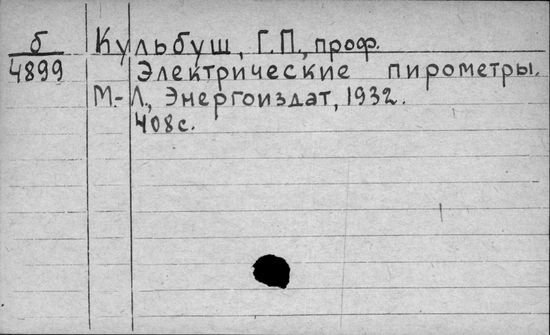 б Кульбуш, Г.П., проф.
4899 Электрические пирометры.
М.-Л., Энергоиздат, 1932.
408с.